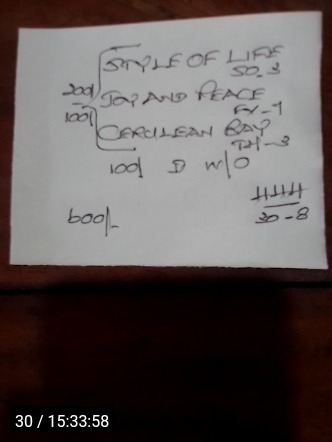 STYLE OF LIFE
SO-3
200/ JOY AND PEACE
100/ FY-1
CERULEAN BAY
TH-3
100/ D W/O
600/-
30-8
30 / 15:33:58